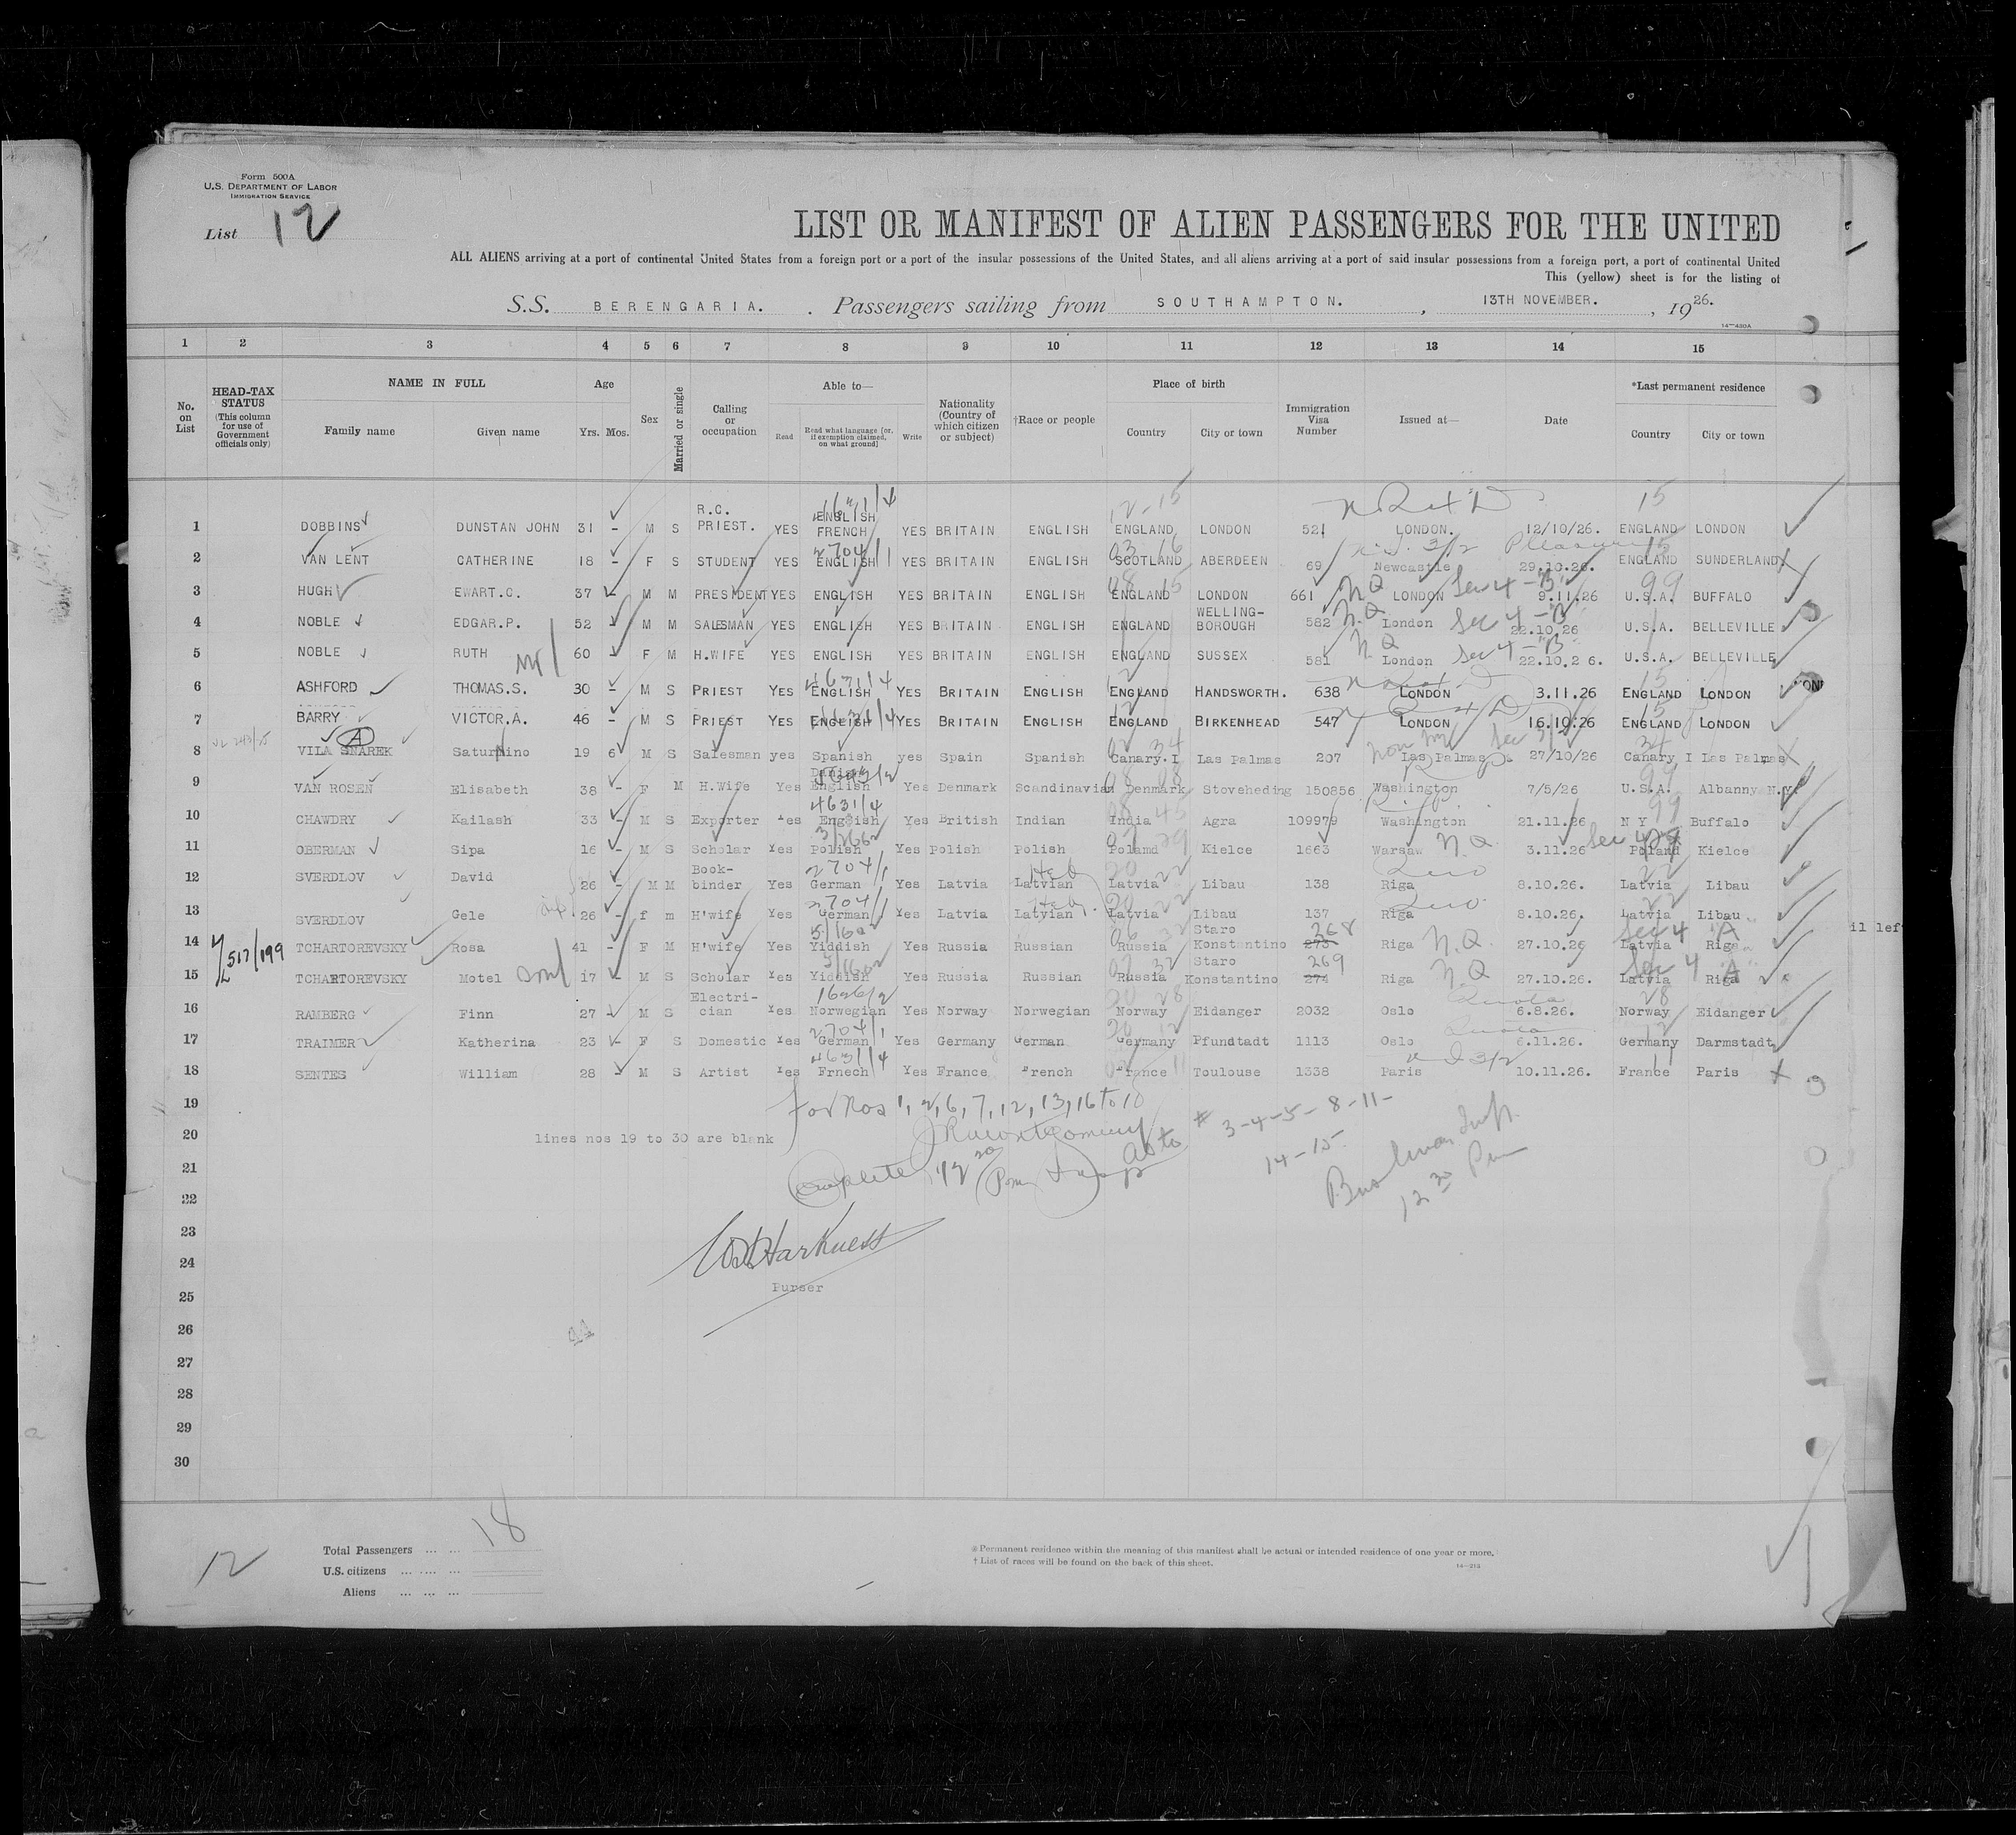 Form 500A
U.S. DEPARTMENT OF LABOR
IMMIGRATION SERVICE
List 12
LIST OR MANIFEST OF ALIEN PASSENGERS FOR THE UNITED
ALL ALIENS arriving at a port of continental United States from a foreign port or a port of the insular possessions of the United States, and all aliens arriving at a port of said insular possessions from a foreign port, a port of continental United
This (yellow) sheet is for the listing of
S.S. BERENGARIA. Passengers sailing from SOUTHAMPTON. , 13TH NOVEMBER. , 1926.
14-430A
1 2 3 4 5 6 7 8 9 10 11 12 13 14 15
No. on List
HEAD-TAX STATUS (This column for use of Government officials only)
NAME IN FULL Family name Given name
Age Yrs. Mos.
Sex
Married or single
Calling or occupation
Able to— Read Read what language [or, if exemption claimed, on what ground] Write
Nationality (Country of which citizen or subject)
†Race or people
Place of birth Country City or town
Immigration Visa Number
Issued at—
Date
*Last permanent residence Country City or town
1 DOBBINS DUNSTAN JOHN 31 - M S R.C. PRIEST. YES ENGLISH FRENCH YES BRITAIN ENGLISH ENGLAND LONDON 521 LONDON. 12/10/26. ENGLAND LONDON
2 VAN LENT CATHERINE 18 - F S STUDENT YES 2704/1 ENGLISH YES BRITAIN ENGLISH SCOTLAND ABERDEEN 69 Newcastle 29.10.26. ENGLAND SUNDERLAND
3 HUGH EWART.C. 37 - M M PRESIDENT YES ENGLISH YES BRITAIN ENGLISH ENGLAND LONDON 661 N.Q LONDON Sec 4-B 9.11.26 U.S.A. BUFFALO
4 NOBLE EDGAR.P. 52 M M SALESMAN YES ENGLISH YES BRITAIN ENGLISH ENGLAND WELLING-BOROUGH 582 N.Q London Sec 4-B 22.10.26 U.S.A. BELLEVILLE
5 NOBLE RUTH 60 F M H.WIFE YES ENGLISH YES BRITAIN ENGLISH ENGLAND SUSSEX 581 N Q London Sec 4-B 22.10.26. U.S.A. BELLEVILLE
6 ASHFORD THOMAS.S. 30 - M S PRIEST YES 4631/4 ENGLISH YES BRITAIN ENGLISH ENGLAND HANDSWORTH. 638 LONDON 3.11.26 ENGLAND LONDON
7 BARRY VICTOR.A. 46 - M S PRIEST YES ENGLISH YES BRITAIN ENGLISH ENGLAND BIRKENHEAD 547 LONDON 16.10.26 ENGLAND LONDON
8 VILA SNAREK Saturnino 19 6 M S Salesman yes Spanish yes Spain Spanish Canary.I Las palmas 207 Las Palmas 27/10/26 Canary I Las Palmas
9 VAN ROSEN Elisabeth 38 - F M H.Wife Yes Danish English Yes Denmark Scandinavian Denmark Stoveheding 150856 Washington 7/5/26 U.S.A. Albanny N.Y.
10 CHAWDRY Kailash 33 - M S Exporter Yes 4631/4 English Yes British Indian India Agra 109979 Washington 21.11.26 N Y Buffalo
11 OBERMAN Sipa 16 - M S Scholar Yes Polish Yes Polish Polish Poland Kielce 1663 Warsaw N.Q. 3.11.26 Sec 4 Poland Kielce
12 SVERDLOV David 26 - M M Book-binder Yes 2704/1 German Yes Latvia Latvian Heb Latvia Libau 138 Riga 8.10.26. Latvia Libau
13 SVERDLOV Gele 26 - f m H'wife Yes 2704/1 German Yes Latvia Latvian Heb. Latvia Libau 137 Riga 8.10.26. Latvia Libau
14 517/199 TCHARTOREVSKY Rosa 41 - F M H'wife Yes Yiddish Yes Russia Russian Russia Staro Konstantino 273 268 Riga N.Q. 27.10.26 Sec 4 A Latvia Riga
15 TCHARTOREVSKY Motel son 17 - M S Scholar Yes Yiddish Yes Russia Russian Russia Staro Konstantino 274 269 Riga N.Q 27.10.26. Sec 4 A Latvia Riga
16 RAMBERG Finn 27 M S Electri-cian Yes 1626/2 Norwegian Yes Norway Norwegian Norway Eidanger 2032 Oslo Quota 6.8.26. Norway Eidanger
17 TRAIMER Katherina 23 - F S Domestic Yes 2704/1 German Yes Germany German Germany Pfundtadt 1113 Oslo Quota 6.11.26. Germany Darmstadt
18 SENTES William 28 - M S Artist Yes 4631/4 Frnech Yes France French France Toulouse 1338 Paris 10.11.26. France Paris
19 For Nos 1, 2, 6, 7, 12, 13, 16 to 18
20 lines nos 19 to 30 are blank
as to # 3-4-5-8-11-
14-15.
21 Complete
12 30 Pm
22
23
24 Harkness
25 Purser
26
27
28
29
30
Total Passengers ... ... 18
U.S. citizens ... ... ...
Aliens ... ... ...
12
* Permanent residence within the meaning of this manifest shall be actual or intended residence of one year or more.
† List of races will be found on the back of this sheet.
14-213